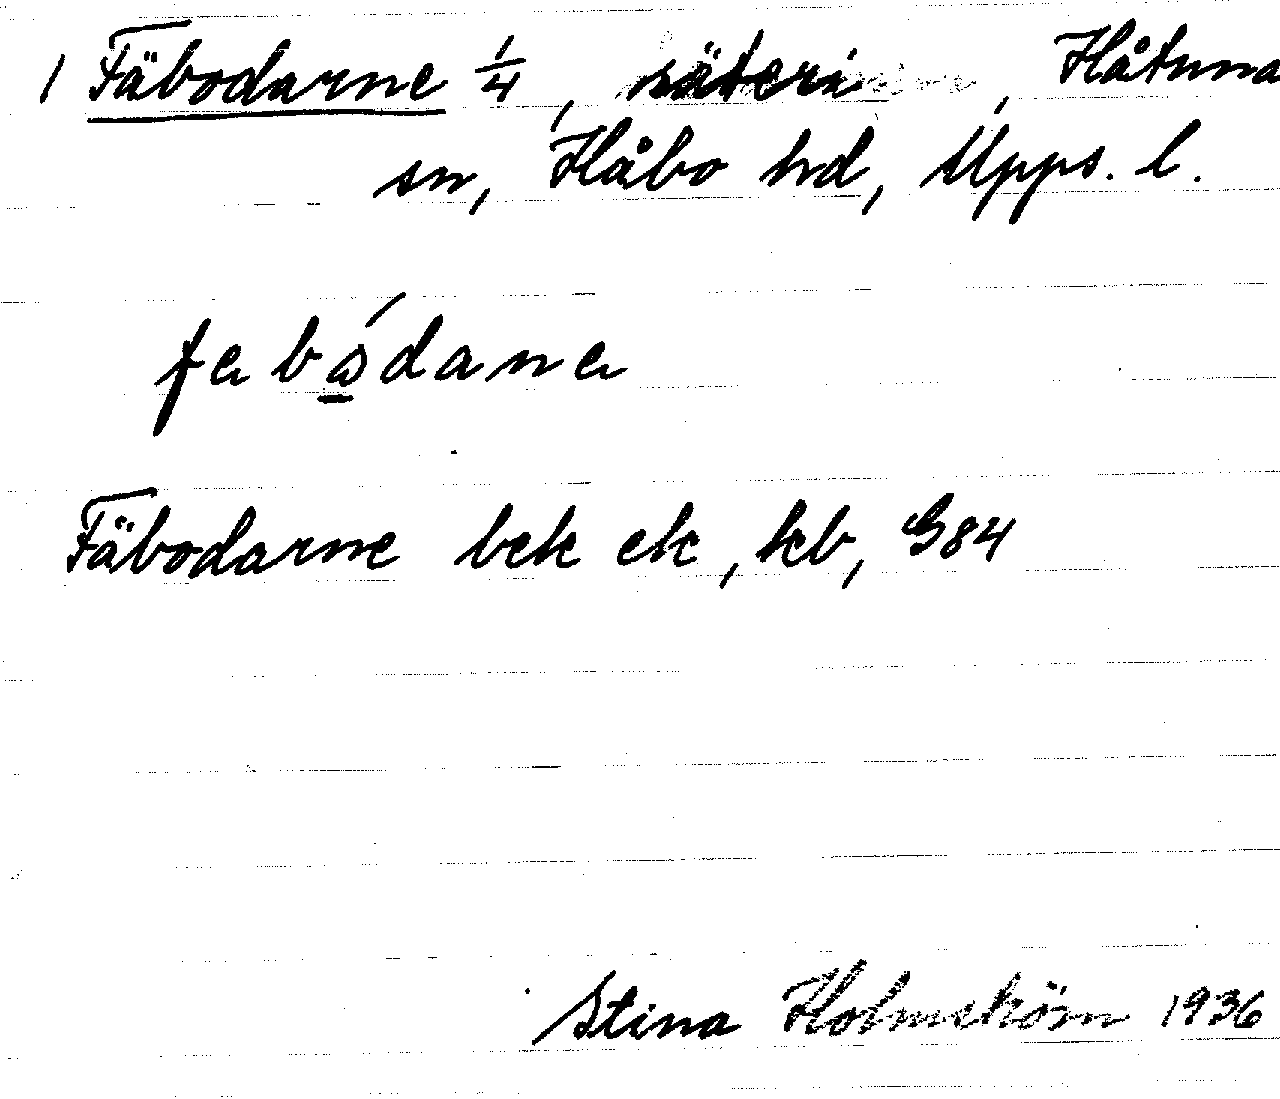 1 Fäbodarne 1/4, säteri, Håtuna
sn, Håbo hd, Upps. l.
fabådana
Fäbodarne bek ek, kb, G84
Stina Holmström 1936